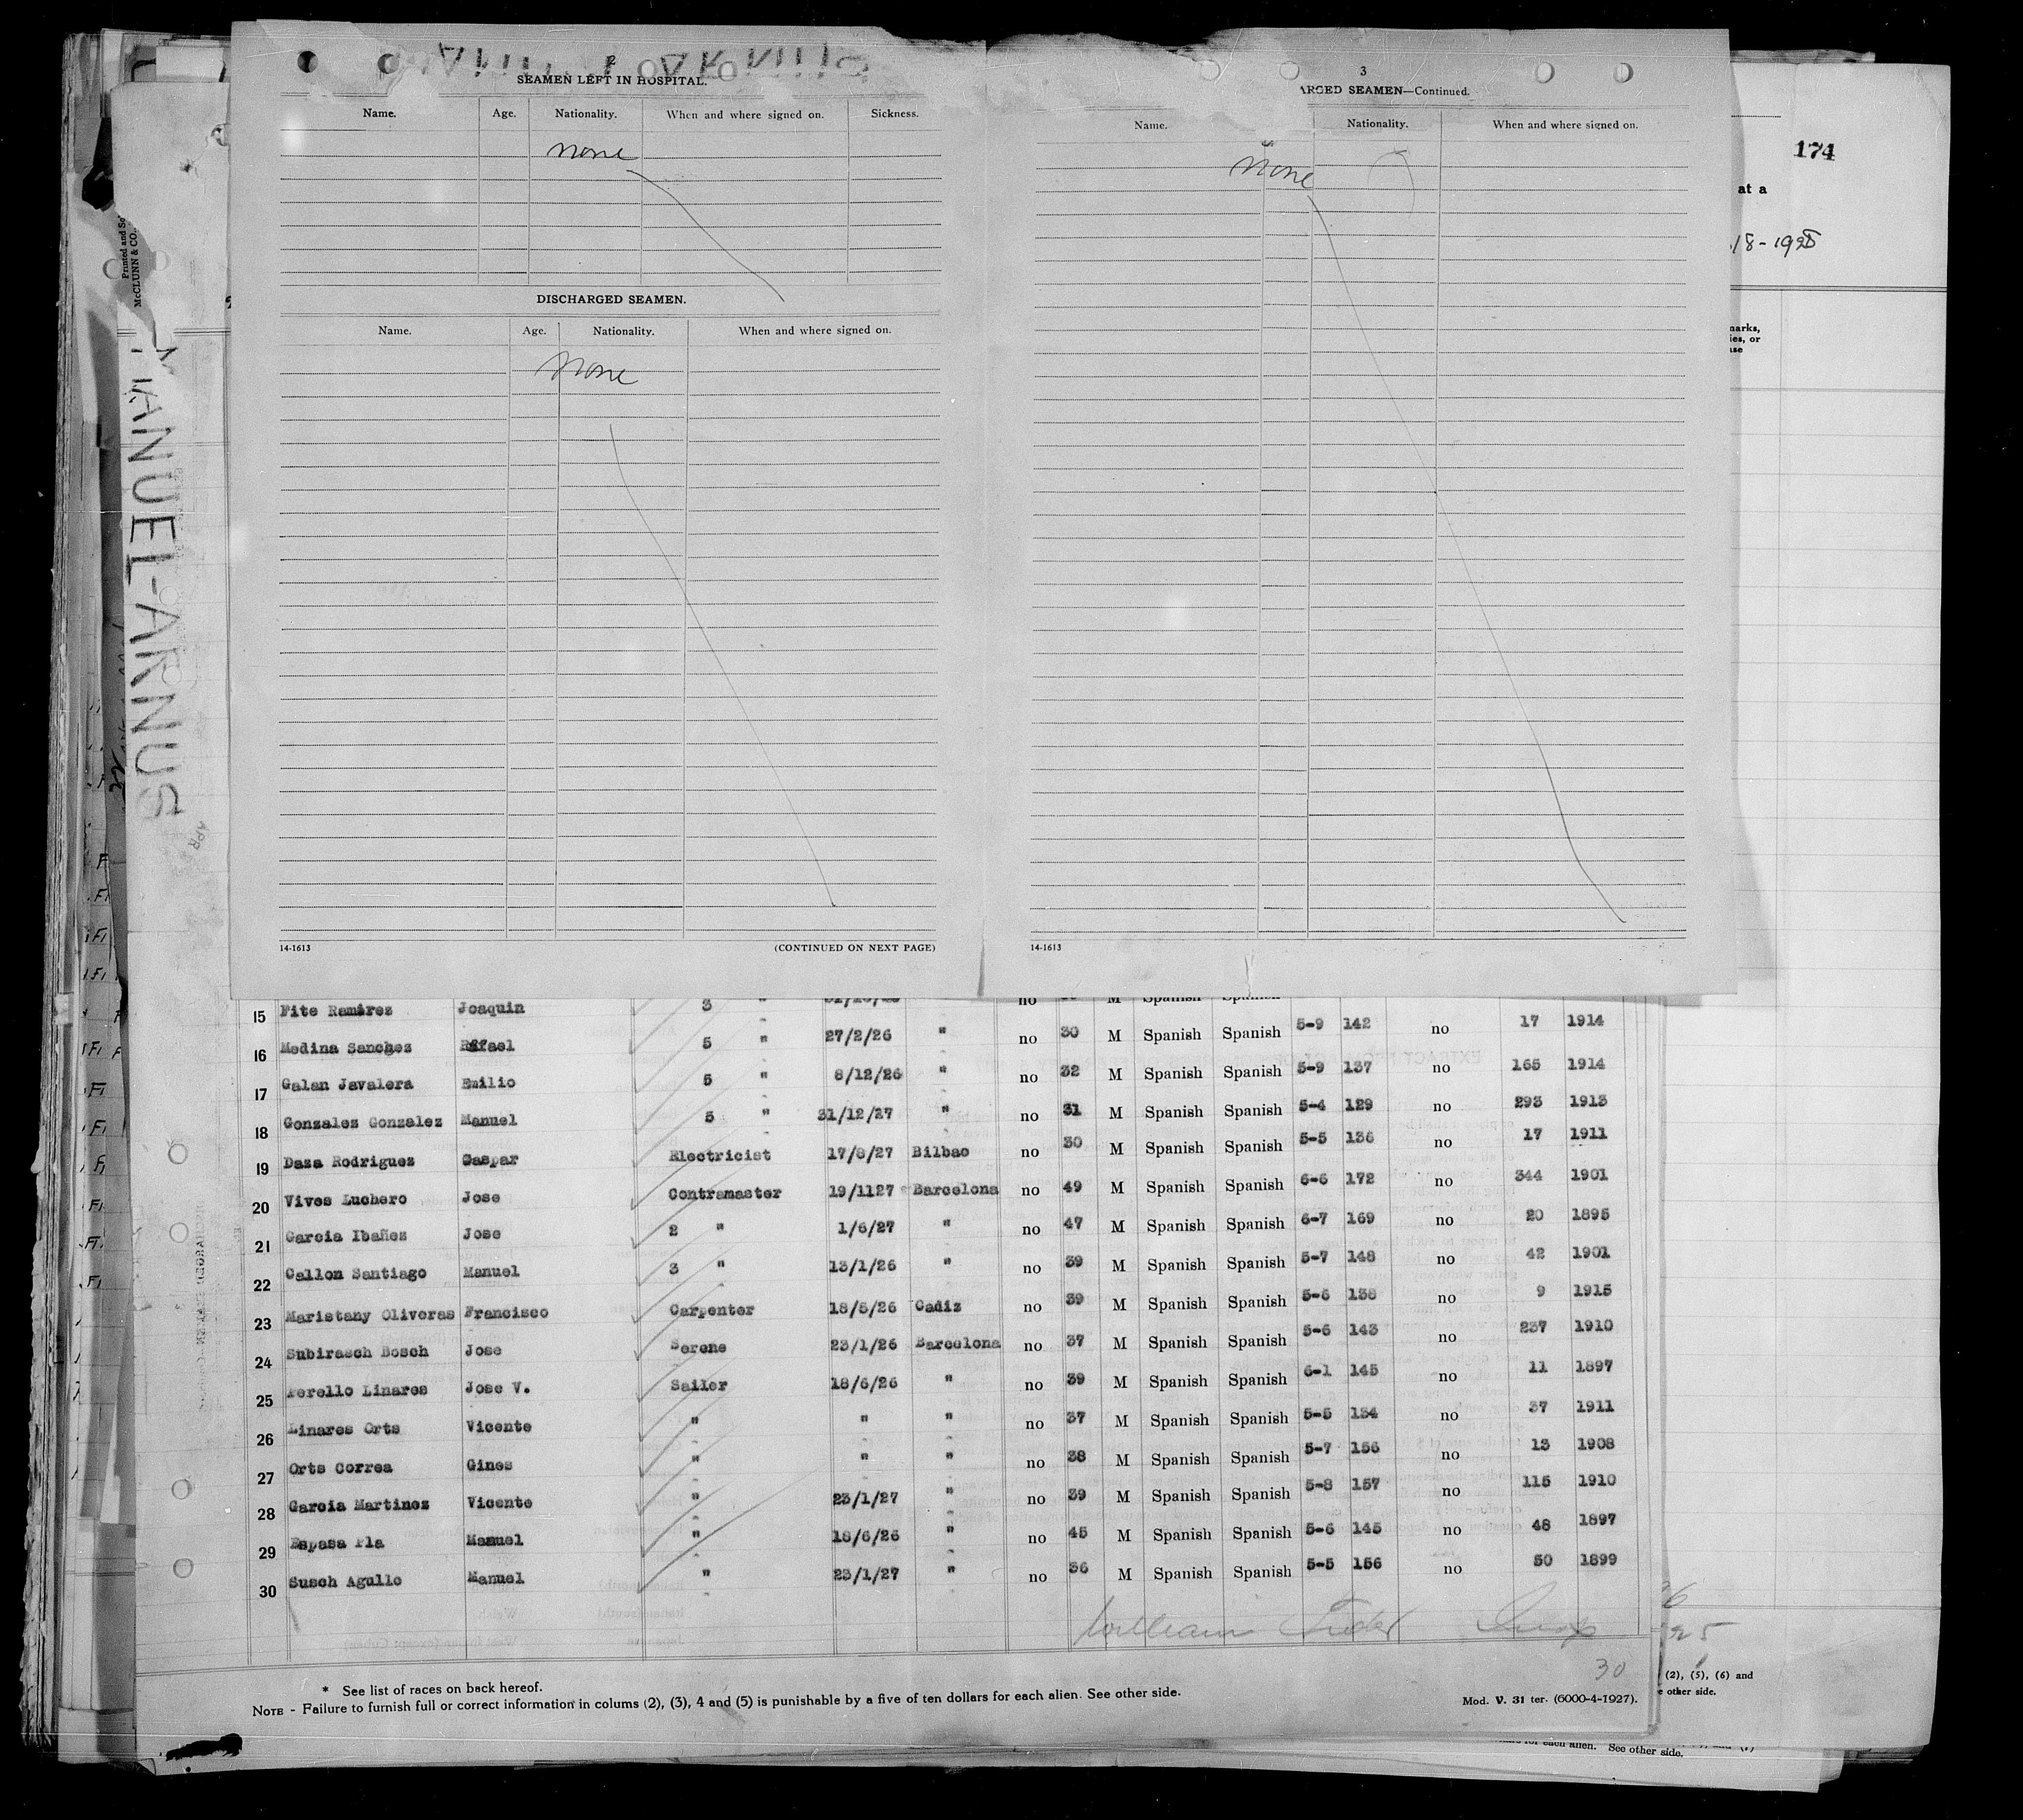 2
SEAMEN LEFT IN HOSPITAL.
Name. Age. Nationality. When and where signed on. Sickness.
none
DISCHARGED SEAMEN.
Name. Age. Nationality. When and where signed on.
None
14-1613 (CONTINUED ON NEXT PAGE)
3
ARGED SEAMEN—Continued.
Name. Nationality. When and where signed on.
None
14-1613
174
at a
/8-1925
narks,
ies, or
ase
Printed and So
McCLUNN & CO.
MANUEL-ARNUS
15 Fite Ramirez Joaquin 3 " no M Spanish
16 Medina Sanchez Raffael 5 " 27/2/26 " no 30 M Spanish Spanish 5-9 142 no 17 1914
17 Galan Javalera Emilio 5 " 8/12/26 " no 32 M Spanish Spanish 5-9 137 no 165 1914
18 Gonzalez Gonzalez Manuel 5 " 31/12/27 " no 31 M Spanish Spanish 5-4 129 no 293 1913
19 Daza Rodriguez Gaspar Electricist 17/8/27 Bilbao no 30 M Spanish Spanish 5-5 136 no 17 1911
20 Vives Luchero Jose Contramaster 19/1127 Barcelona no 49 M Spanish Spanish 6-6 172 no 344 1901
21 Garcia Ibañez Jose 2 " 1/6/27 " no 47 M Spanish Spanish 6-7 169 no 20 1895
22 Callon Santiago Manuel 3 " 13/1/26 " no 39 M Spanish Spanish 5-7 148 no 42 1901
23 Maristany Oliveras Francisco Carpenter 18/6/26 Cadiz no 39 M Spanish Spanish 5-6 138 no 9 1915
24 Subirasch Bosch Jose Serene 23/1/26 Barcelona no 37 M Spanish Spanish 5-6 143 no 237 1910
25 Perello Linares Jose V. Sailer 18/6/26 " no 39 M Spanish Spanish 6-1 145 no 11 1897
26 Linares Orts Vicente " " " no 37 M Spanish Spanish 5-5 134 no 37 1911
27 Orts Correa Gines " " " no 38 M Spanish Spanish 5-7 156 no 13 1908
28 Garcia Martinez Vicente " 23/1/27 " no 39 M Spanish Spanish 5-8 157 no 115 1910
29 Espasa Pla Manuel " 18/6/26 " no 45 M Spanish Spanish 5-6 145 no 48 1897
30 Susch Agullo Manuel " 23/1/27 " no 36 M Spanish Spanish 5-5 156 no 50 1899
William
30
* See list of races on back hereof.
NOTE - Failure to furnish full or correct information in colums (2), (3), 4 and (5) is punishable by a five of ten dollars for each alien. See other side.
Mod. V. 31 ter. (6000-4-1927).
(2), (5), (6) and
e other side.
for each alien. See other side.